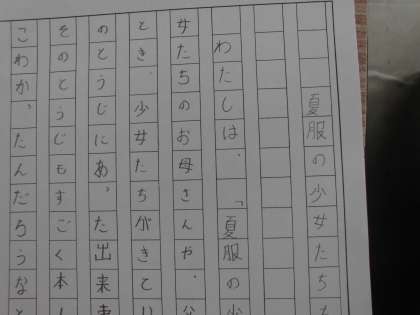 夏服の少女たち
わたしは、「夏服の少
女たちのお母さんや、
とき、少女たちがきと
のとうじにあった出来事
そのとうじもすごく本
こわかったんだろうなと